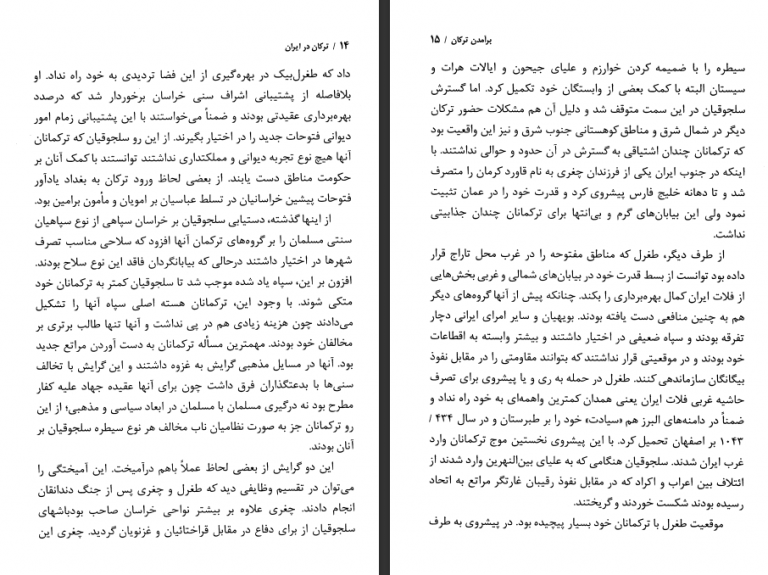 ۱۴ / ترکان در ایران
داد که طغرل‌بیک در بهره‌گیری از این فضا تردیدی به خود راه نداد. او
بلافاصله از پشتیبانی اشراف سنی خراسان برخوردار شد که درصدد
بهره‌برداری عقیدتی بودند و ضمناً می‌خواستند با این پشتیبانی زمام امور
دیوانی فتوحات جدید را در اختیار بگیرند. از این رو سلجوقیان که ترکمانان
آنها هیچ نوع تجربه دیوانی و مملکتداری نداشتند توانستند با کمک آنان بر
حکومت مناطق دست یابند. از بعضی لحاظ ورود ترکان به بغداد یادآور
فتوحات پیشین خراسانیان در تسلط عباسیان بر امویان و مأمون برامین بود.
از اینها گذشته، دستیابی سلجوقیان بر خراسان سپاهی از نوع سپاهیان
سنتی مسلمان را بر گروه‌های ترکمان آنها افزود که سلاحی مناسب تصرف
شهرها در اختیار داشتند درحالی که بیابانگردان فاقد این نوع سلاح بودند.
افزون بر این، سپاه یاد شده موجب شد تا سلجوقیان کمتر به ترکمانان خود
متکی شوند. با وجود این، ترکمانان هسته اصلی سپاه آنها را تشکیل
می‌دادند چون هزینه زیادی هم در پی نداشت و آنها تنها طالب برتری بر
مخالفان خود بودند. مهمترین مسأله ترکمانان به دست آوردن مراتع جدید
بود. آنها در مسایل مذهبی گرایش به غزوه داشتند و این گرایش با تخالف
سنی‌ها با بدعتگذاران فرق داشت چون برای آنها عقیده جهاد علیه کفار
مطرح بود نه درگیری مسلمان با مسلمان در ابعاد سیاسی و مذهبی؛ از این
رو ترکمانان جز به صورت نظامیان ناب مخالف هر نوع سیطره سلجوقیان بر
آنان بودند.
این دو گرایش از بعضی لحاظ عملاً باهم درآمیخت. این آمیختگی را
می‌توان در تقسیم وظایفی دید که طغرل و چغری پس از جنگ دندانقان
انجام دادند. چغری علاوه بر بیشتر نواحی خراسان صاحب بودباشهای
سلجوقیان از برای دفاع در مقابل قراختائیان و غزنویان گردید. چغری این
برآمدن ترکان / ۱۵
سیطره را با ضمیمه کردن خوارزم و علیای جیحون و ایالات هرات و
سیستان البته با کمک بعضی از وابستگان خود تکمیل کرد. اما گسترش
سلجوقیان در این سمت متوقف شد و دلیل آن هم مشکلات حضور ترکان
دیگر در شمال شرق و مناطق کوهستانی جنوب شرق و نیز این واقعیت بود
که ترکمانان چندان اشتیاقی به گسترش در آن حدود و حوالی نداشتند. با
اینکه در جنوب ایران یکی از فرزندان چغری به نام قاورد کرمان را متصرف
شد و تا دهانه خلیج فارس پیشروی کرد و قدرت خود را در عمان تثبیت
نمود ولی این بیابان‌های گرم و بی‌انتها برای ترکمانان چندان جذابیتی
نداشت.
از طرف دیگر، طغرل که مناطق مفتوحه را در غرب محل تاراج قرار
داده بود توانست از بسط قدرت خود در بیابان‌های شمالی و غربی بخش‌هایی
از فلات ایران کمال بهره‌برداری را بکند. چنانکه پیش از آنها گروه‌های دیگر
هم به چنین منافعی دست یافته بودند. بویهیان و سایر امرای ایرانی دچار
تفرقه بودند و سپاه ضعیفی در اختیار داشتند و بیشتر وابسته به اقطاعات
خود بودند و در موقعیتی قرار نداشتند که بتوانند مقاومتی را در مقابل نفوذ
بیگانگان سازماندهی کنند. طغرل در حمله به ری و یا پیشروی برای تصرف
حاشیه غربی فلات ایران یعنی همدان کمترین واهمه‌ای به خود راه نداد و
ضمناً در دامنه‌های البرز هم «سیادت» خود را بر طبرستان و در سال ۴۳۴ /
۱۰۴۳ بر اصفهان تحمیل کرد. با این پیشروی نخستین موج ترکمانان وارد
غرب ایران شدند. سلجوقیان هنگامی که به علیای بین‌النهرین وارد شدند از
ائتلاف بین اعراب و اکراد که در مقابل نفوذ رقیبان غارتگر مراتع به اتحاد
رسیده بودند شکست خوردند و گریختند.
موقعیت طغرل با ترکمانان خود بسیار پیچیده بود. در پیشروی به طرف